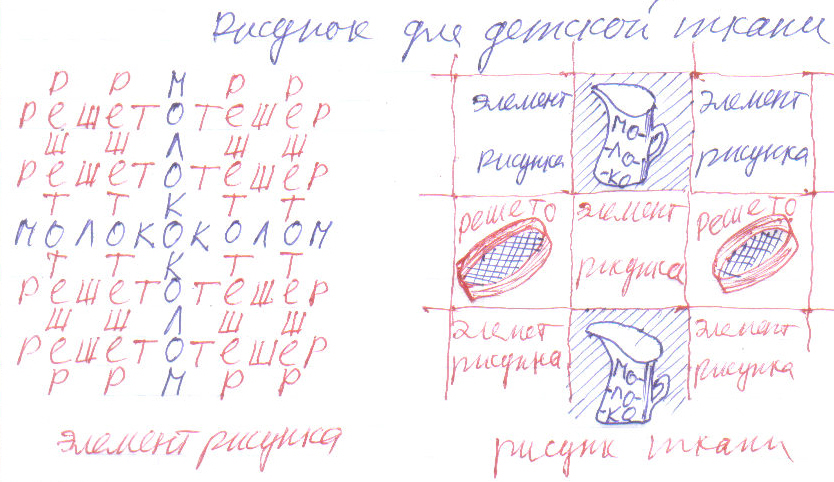 Рисунок для детской ткани
Р Р М Р Р
РЕШЕТОТЕШЕР
Ш Ш Л Ш Ш
РЕШЕТОТЕШЕР
Т Т К Т Т
МОЛОКОКОЛОМ
Т Т К Т Т
РЕШЕТОТЕШЕР
Ш Ш Л Ш Ш
РЕШЕТОТЕШЕР
Р Р М Р Р
элемент рисунка
элемент
рисунка
МО-
-ЛО-
-КО
элемент
рисунка
РЕШЕТО
элемент
рисунка
РЕШЕТО
элемет
рисунка
МО-
-ЛО-
-КО
элемент
рисунка
рисунк ткани